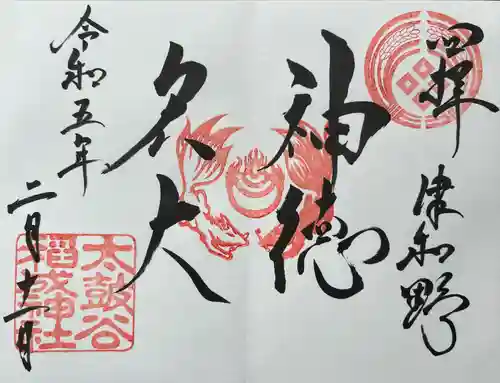 奉拝
津和野
神徳
大
令和五年
二月十一日
太皷谷
稲成神社